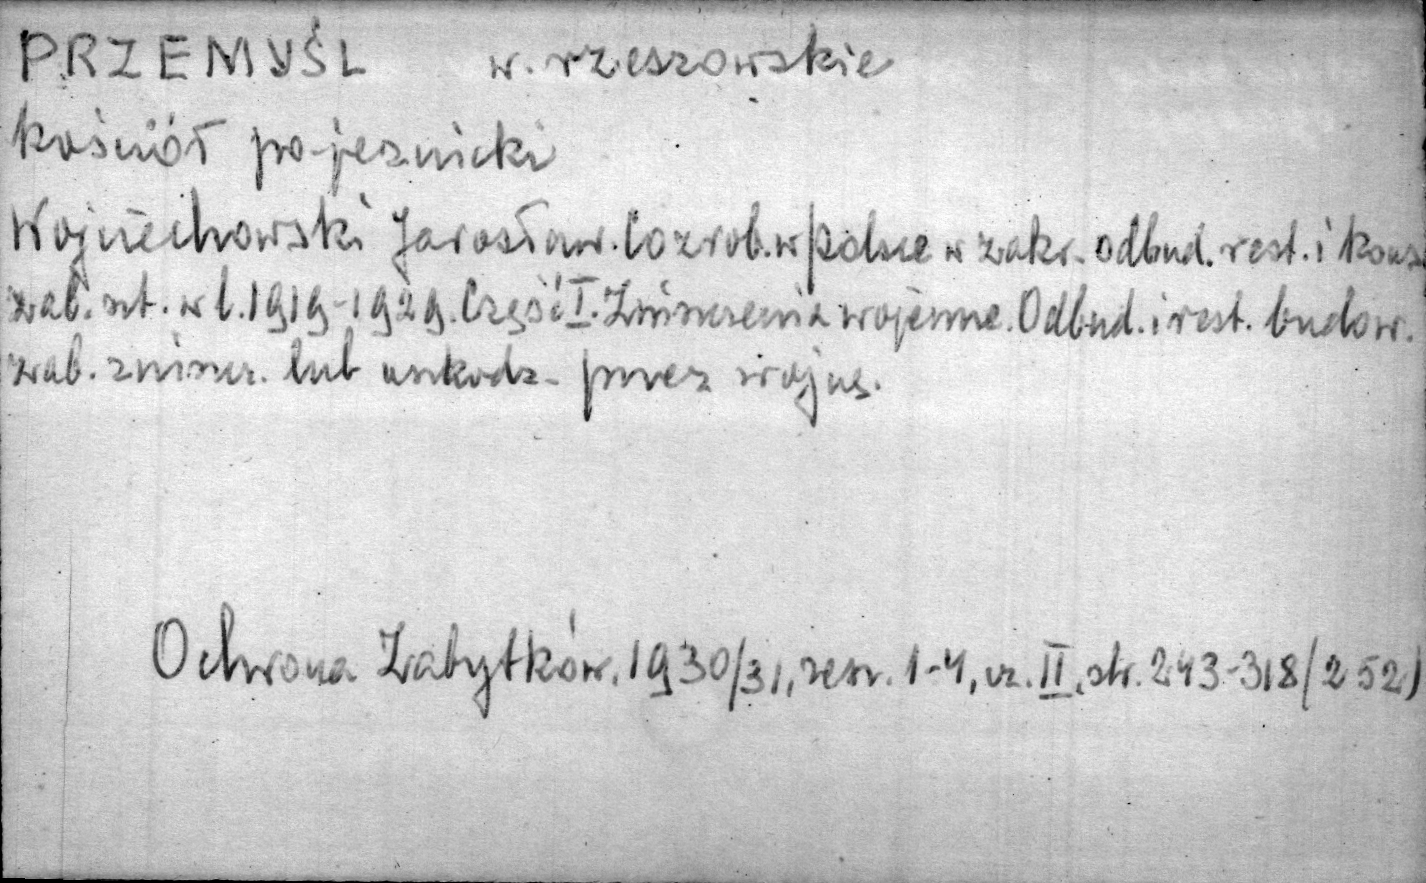 PRZEMYŚL w. rzeszowskie
kościół pojezuicki
Wojciechowski Jarosław. Co zrob. w Polsce w zakr. odbud. rest. i kons.
zab. szt. w l. 1919-1929. Część I. Zniszczenia wojenne. Odbud. i rest. budow.
zab. zniszcz. lub uszkodz. przez wojnę.
Ochrona Zabytków, 1930/31, zesz. 1-4, cz. II, str. 243-318 (252)